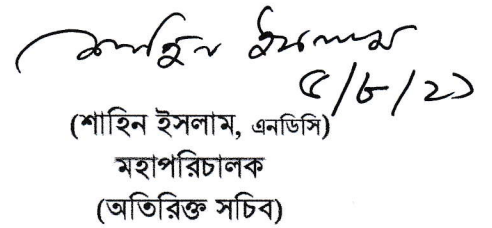 শাহিন ইসলাম
৫/৮/২১
(শাহিন ইসলাম, এনডিসি)
মহাপরিচালক
(অতিরিক্ত সচিব)